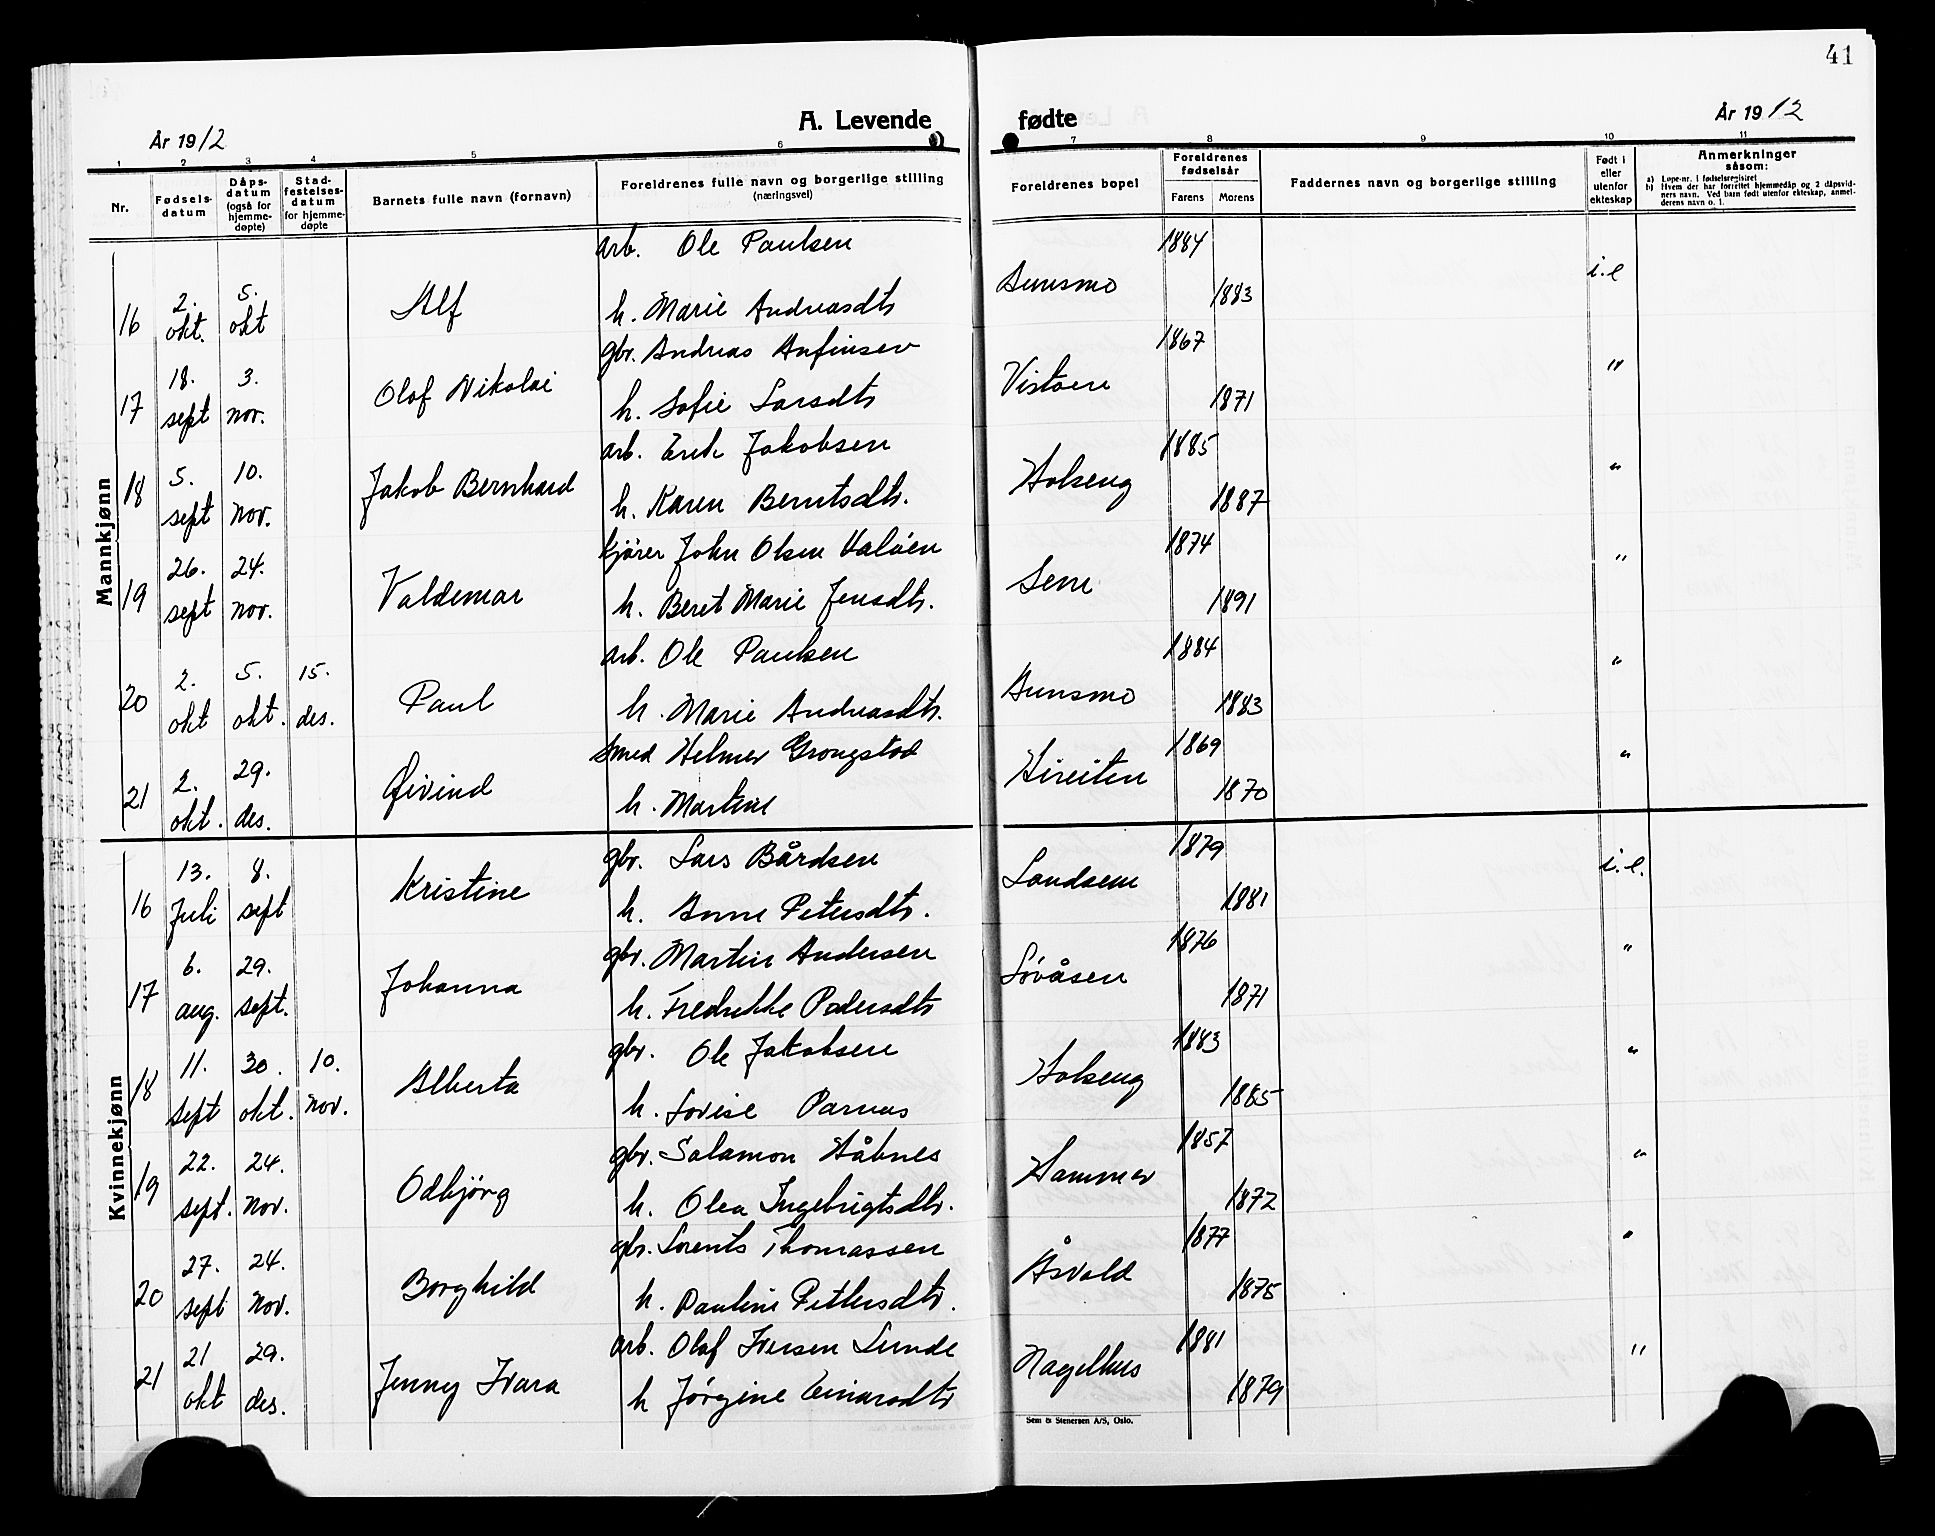 41
År 1912
A. Levende fødte
År 1912
1 2 3 4 5 6 7 8 9 10 11
Nr.
Fødsels-datum
Dåps-datum (også for hjemme-døpte)
Stad-festelses-datum for hjemme-døpte
Barnets fulle navn (fornavn)
Foreldrenes fulle navn og borgerlige stilling (næringsvei)
Foreldrenes bopel
Foreldrenes fødselsår
Farens Morens
Faddernes navn og borgerlige stilling
Født i eller utenfor ekteskap
Anmerkninger såsom:
a) Løpe-nr. i fødselsregistret
b) Hvem der har forrettet hjemmedåp og 2 dåpsvidners navn. Ved barn født utenfor ekteskap, anmelderens navn o. l.
Mannkjønn
arb. Ole Paulsen 1884
16 2. okt. 5. okt Alf h. Marie Andreasdtr Aunsmo 1883 i.e
gbr. Andreas Anfinsen 1867
17 18. sept 3. nov. Olof Nikolai h. Sofie Larsdtr Vistven 1871 "
arb. Erik Jakobsen 1885
18 5. sept 10. nov. Jakob Bernhard h. Karen Berntsdtr. Holseng 1887 "
kjører John Olsen Valøen 1874
19 26. sept 24. nov. Valdemar h. Beret Marie Jensdtr. Sem 1891 "
arb. Ole Paulsen 1884
20 2. okt 5. okt. 15. des. Paul h. Marie Andreasdtr. Aunsmo 1883 "
smed Helmer Grongstad 1869
21 2. okt. 29. des. Øivind h. Martine 1870 "
Kvinnekjønn
gbr. Lars Bårdsen 1879
16 13. Juli 8. sept Kristine h. Anne Petersdtr. Landsem 1881 i.e.
gbr. Martin Andersen 1876
17 6. aug. 29. sept. Johanna h. Fredrikke Pedersdtr Løvåsen 1871 "
gbr. Ole Jakobsen 1883
18 11. sept 30. okt. 10. nov. Alberta h. Lovise Parnas Holseng 1885 "
gbr. Salamon Håbnes 1857
19 22. sept. 24. nov. Odbjørg h. Olea Ingebrigtsdtr. Hammer 1872 "
gbr. Lorents Thomassen 1877
20 27. sept 24. nov. Borghild h. Pauline Pettersdtr. Åsvold 1875 "
arb. Olaf Iversen Lunde 1881
21 21 okt 29. des. Jenny Ivara h Jørgine Einarsdtr Nagelhus 1879 "
Sem & Stenersen A/S, Oslo.